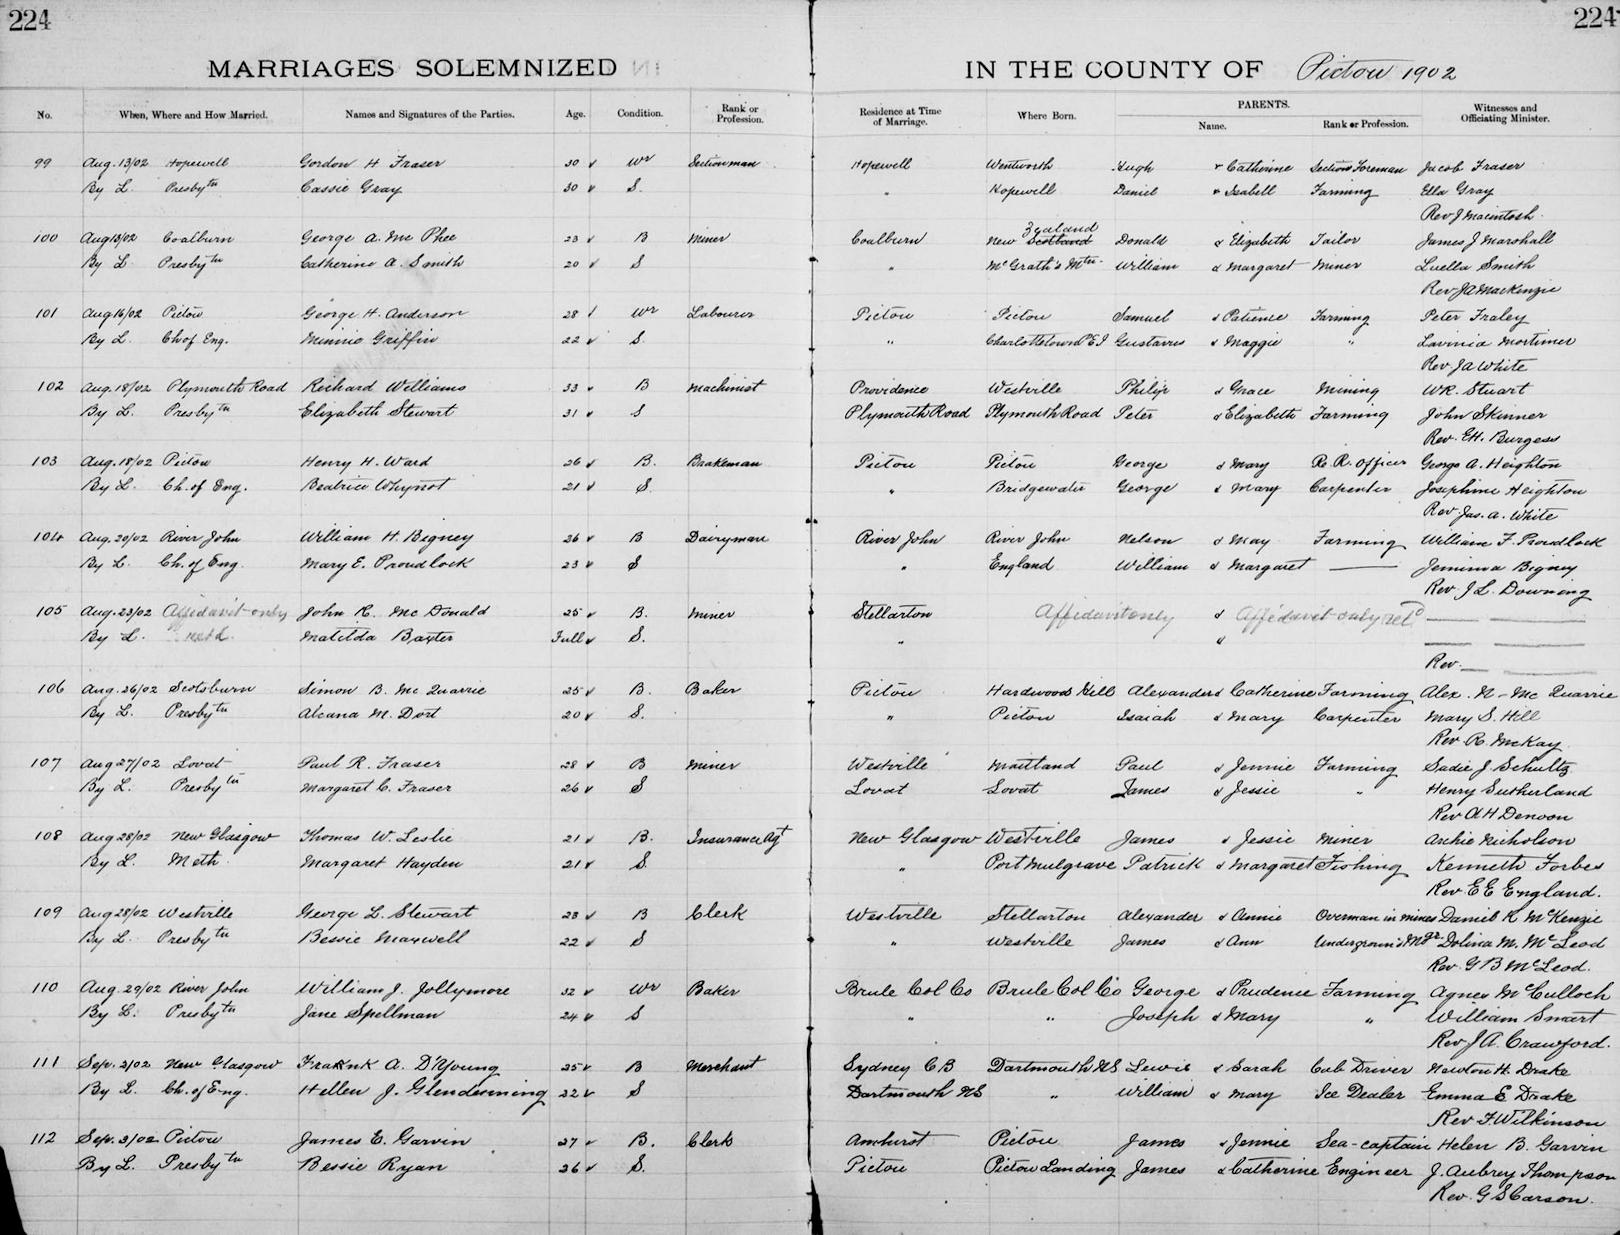 224 224
MARRIAGES SOLEMNIZED IN THE COUNTY OF Pictou 1902
No. When, Where and How Married. Names and Signatures of the Parties. Age. Condition. Rank or Profession. Residence at Time of Marriage. Where Born. PARENTS. Name. Rank or Profession. Witnesses and Officiating Minister.
99 Aug. 13/02 Hopewell Gordon H Fraser 30 Wr Sectionman Hopewell Wentworth Hugh & Catherine Section Foreman Jacob Fraser
By L. Presbytn Cassie Gray 30 S. " Hopewell Daniel & Isabell Farming Ella Gray
Rev J Macintosh.
100 Aug 13/02 Coalburn George A. Mc Phee 23 B Miner Coalburn New Scotland Zealand Donald & Elizabeth Tailor James J Marshall
By L. Presbytn Catherine A. Smith 20 S " McGrath's Mtn. William & Margaret Miner Luella Smith
Rev JA MacKenzie
101 Aug 16/02 Pictou George H. Anderson 28 Wr Labourer Pictou Pictou Samuel & Patience Farming Peter Fraley
By L. Ch of Eng. Minnie Griffin 22 S. " Charlottetown P.E.I Gustavus & Maggie " Lavinia Mortimer
Rev JA White
102 Aug. 18/02 Plymouth Road Richard Williams 33 B Machinist Providence Westville Philip & Grace Mining WR. Stuart
By L. Presbytn Elizabeth Stewart 31 S Plymouth Road Plymouth Road Peter & Elizabeth Farming John Skinner
Rev. EH. Burgess
103 Aug. 18/02 Pictou Henry H. Ward 26 B. Brakeman Pictou Pictou George & Mary R. R. Officer George A. Heighton
By L. Ch. of Eng. Beatrice Whynot 21 S. " Bridgewater George & Mary Carpenter Josephine Heighton
Rev. Jas. A. White
104 Aug. 20/02 River John William H. Bigney 26 B Dairyman River John River John Nelson & May Farming William F. Proudlock
By L. Ch. of Eng. Mary E. Proudlock 23 S " England William & Margaret — Jemima Bigney
Rev. J L. Downing
105 Aug. 23/02 Affidavit only John R. Mc Donald 25 B. Miner Stellarton Affidavit only & Affidavit only retd —
By L. Matilda Baxter Full S. " & —
Rev. —
106 Aug. 26/02 Scotsburn Simon B. Mc Quarrie 25 B. Baker Pictou Hardwood Hill Alexander & Catherine Farming Alex. N. Mc Quarrie
By L. Presbytn Alcana M. Dort 20 S. " Pictou Isaiah & Mary Carpenter Mary S. Hill
Rev. R. McKay.
107 Aug 27/02 Lovat Paul R. Fraser 28 B Miner Westville Maitland Paul & Jennie Farming Sadie J. Schultz
By L. Presbytn Margaret C. Fraser 26 S Lovat Lovat James & Jessie " Henry Sutherland
Rev A H Denoon
108 Aug 28/02 New Glasgow Thomas W. Leslie 21 B. Insurance Agt New Glasgow Westville James & Jessie Miner Archie Nicholson
By L. Meth. Margaret Hayden 21 S. " Port Mulgrave Patrick & Margaret Fishing Kenneth Forbes
Rev E E England.
109 Aug 28/02 Westville George L. Stewart 23 B Clerk Westville Stellarton Alexander & Annie Overman in mines Daniel K McKenzie
By L. Presbytn Bessie Maxwell 22 S " Westville James & Ann Underground Mgr. Dolina M. McLeod
Rev. G B McLeod.
110 Aug. 29/02 River John William J. Jollymore 32 Wr Baker Brule Col Co Brule Col Co George & Prudence Farming Agnes McCulloch
By L. Presbytn Jane Spellman 24 S " " Joseph & Mary " William Smart
Rev J A. Crawford.
111 Sep. 2/02 New Glasgow Frank A. D'Young 25 B Merchant Sydney C B Dartmouth NS Lewis & Sarah Cab Driver Newton H. Drake
By L. Ch. of Eng. Hellen J. Glendenning 22 S Dartmouth NS " William & Mary Ice Dealer Emma E Drake
Rev F. Wilkinson
112 Sep. 3/02 Pictou James E. Garvin 27 B. Clerk Amhurst Pictou James & Jennie Sea-captain Helen B. Garvin
By L. Presbytn Bessie Ryan 26 S. Pictou Pictou Landing James & Catherine Engineer J. Aubrey Thompson
Rev. G S Carson.